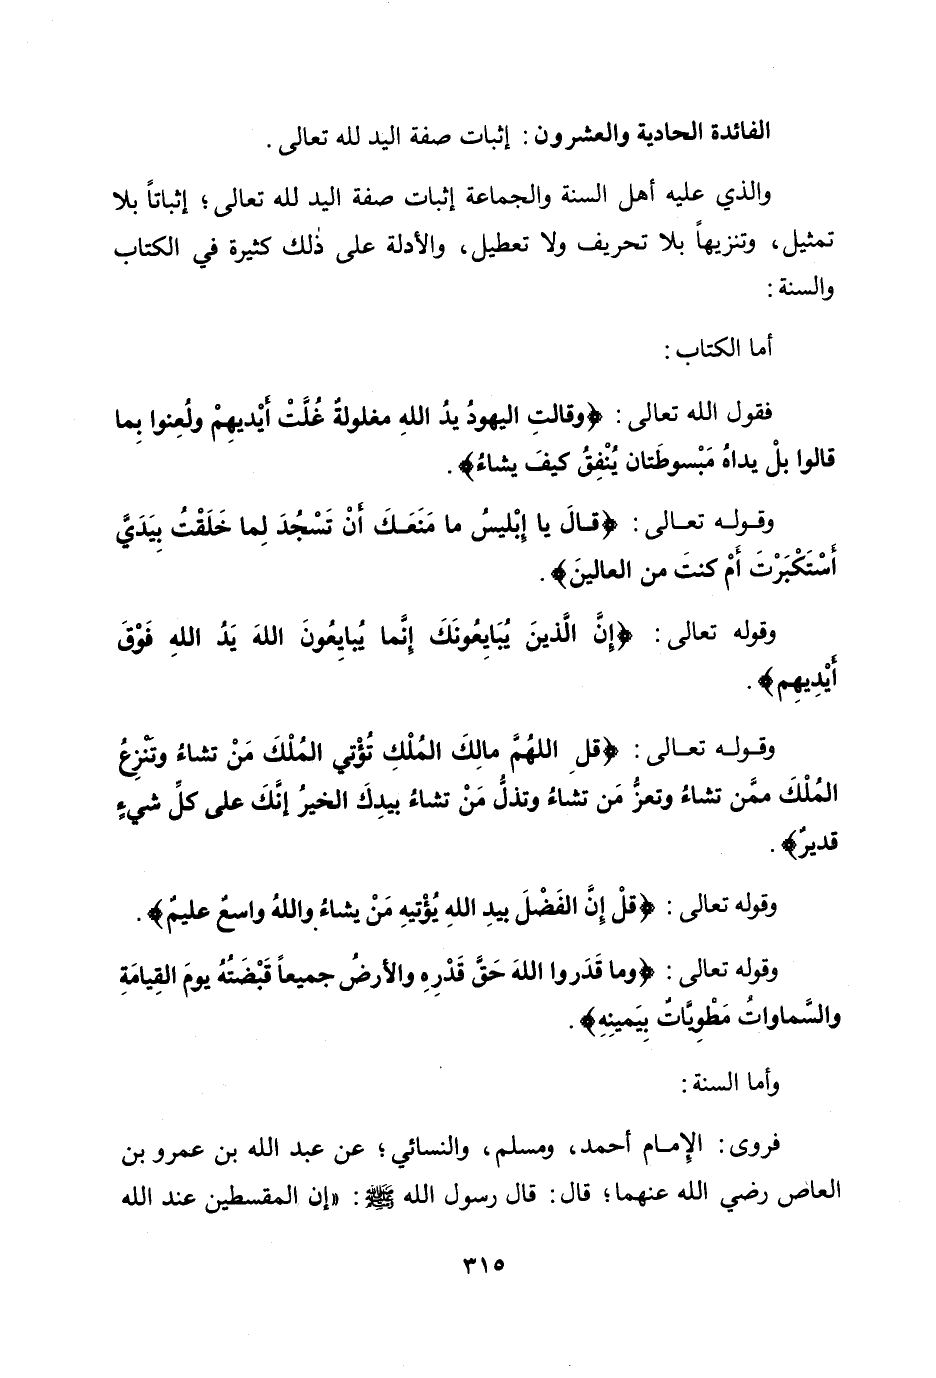 الفائدة الحادية والعشرون: إثبات صفة اليد لله تعالى.
والذي عليه أهل السنة والجماعة إثبات صفة اليد لله تعالى؛ إثباتاً بلا
تمثيل، وتنزيهاً بلا تحريف ولا تعطيل، والأدلة على ذٰلك كثيرة في الكتاب
والسنة:
أما الكتاب:
فقول الله تعالى: ﴿وقالتِ اليهودُ يدُ اللهِ مغلولةٌ غُلَّتْ أَيْديهِمْ ولُعِنوا بِما
قالوا بلْ يداهُ مَبْسوطَتان يُنْفِقُ كيفَ يشاءُ﴾.
وقوله تعالى: ﴿قالَ يا إِبْليسُ ما مَنَعَكَ أَنْ تَسْجُدَ لِما خَلَقْتُ بِيَدَيَّ
أَسْتَكْبَرْتَ أَمْ كنتَ من العالينَ﴾.
وقوله تعالى: ﴿إِنَّ الَّذينَ يُبَايِعُونَكَ إِنَّما يُبايِعُونَ اللهَ يَدُ اللهِ فَوْقَ
أَيْدِيهِم﴾.
وقوله تعالى: ﴿قلِ اللهُمَّ مالِكَ المُلْكِ تُؤْتي المُلْكَ مَنْ تشاءُ وتَنْزِعُ
المُلْكَ ممَّن تشاءُ وتعزُّ مَن تشاءُ وتذلُّ مَنْ تشاءُ بيدِكَ الخيرُ إنَّكَ على كلِّ شيءٍ
قديرٌ﴾.
وقوله تعالى: ﴿قلْ إِنَّ الفَضْلَ بيدِ اللهِ يُؤْتيهِ مَنْ يشاءُ واللهُ واسعٌ عليمٌ﴾.
وقوله تعالى: ﴿وما قَدَروا اللهَ حَقَّ قَدْرِهِ والأرضُ جميعاً قَبْضَتُهُ يومَ القِيامَةِ
والسَّماواتُ مَطْوِيَّاتٌ بِيَمينِهِ﴾.
وأما السنة:
فروى: الإمام أحمد، ومسلم، والنسائي؛ عن عبد الله بن عمرو بن
العاص رضي الله عنهما؛ قال: قال رسول الله ﷺ: «إن المقسطين عند الله
٣١٥